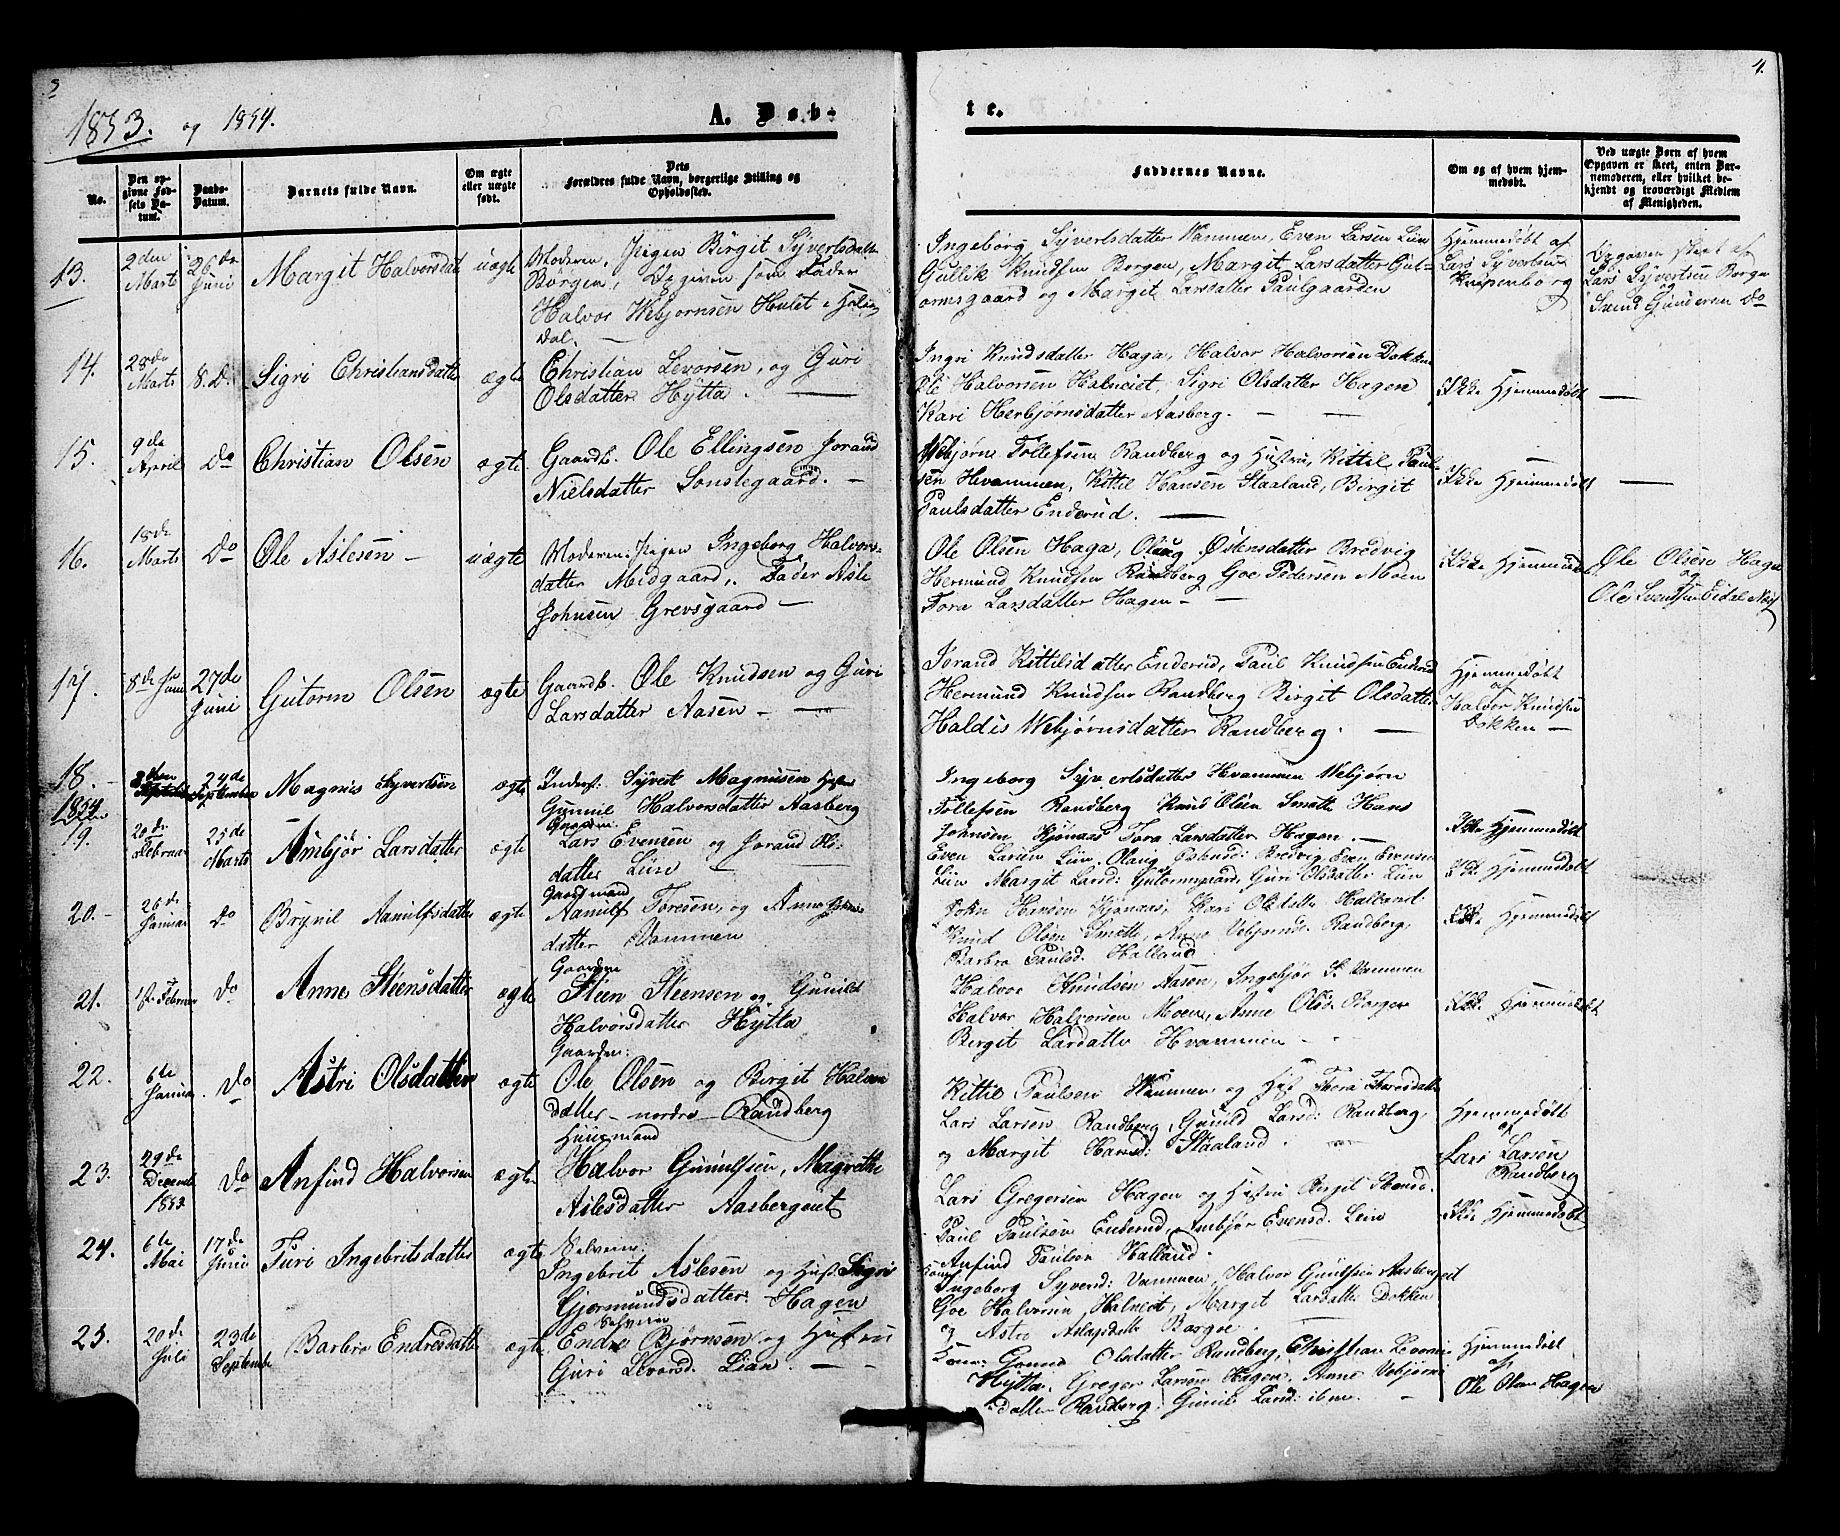 3
4.
1853. og 1854.
A. Døb-
te.
No.
Den op-
givne Fød-
sels Da-
tum.
Daabs-
Datum.
Barnets fulde Navn.
Om ægte
eller uægte
født.
Dets
Forældres fulde Navn, borgerlige Stilling og
Opholdssted.
Faddernes Navne.
Om og af hvem hjem-
medøbt.
Ved uægte Børn af hvem
Opgaven er skeet, enten Bar-
nemoderen, eller hvilket be-
kjendt og troværdigt Medlem
af Menigheden.
13.
2den
Marts
26de
Juni
Margit Halvorsdat
uægte
Moderen, Pigen Birgit Syvertsdatter
Børgen, Opgiven som Fader
Halvor Webjørnsen
Dal. —
Ingeborg Syvertsdatter Vammen, Even Larsen Lien
Gullik Knudsen Borgen, Margit Larsdatter Gut-
ormsgaard og Margit Larsdatter Paulgaarden
Hjemmedøbt af
Lars Syvertsen
Opgaven skeet af
Lars Syvertsen Borge
og
Svend Gunderen Do
14.
28de
Marts
8. D.
Sigri Christiansdatter
ægte
Christian Levorsen, og Guri
Olsdatter Hytta. —
Ingri Knudsdatter Haga, Halvor Halvorsen Dokken
Ole Halvorsen Halneiet, Sigri Olsdatter Hagen
Kari Herbjørnsdatter Aasberg. — —
Ikke Hjemmedøbt
—
15.
9de
April
Do
Christian Olsen
ægte
Gaardb. Ole Ellingsen Jorand
Nielsdatter Sonstegaard. —
Webjørn Tollefsen Randberg og Hustru, Kittil Paul-
sen Hvammen, Kittil Hansen Staaland, Birgit
Paulsdatter Enderud. —
Ikke Hjemmedøbt
—
16.
18de
Marts
Do
Ole Aslesen —
uægte
Moderen: Pigen Ingeborg Halvors-
datter Midgaard, Fader Asle
Johnsen Grevsgaard —
Ole Olsen Haga, Olaug Østensdatter Bredvig
Hermund Knudsen Randberg Goe Pedersen Moen
Tora Larsdatter Hagen — —
Ikke Hjemmedøbt
Ole Olsen Haga
og
Ole Svendsen
17.
8de Juni
27de
Juni
Gutorm Olsen
ægte
Gaardb. Ole Knudsen og Guri
Larsdatter Aasen — —
Jorand Kittilsdatter Enderud, Paul Knudsen Enderud
Hermund Knudsen Randberg Birgit Olsdatter
Haldis Webjørnsdatter Randberg. —
Hjemmedøbt
af
Halvor Knudsen
Dokken —
18.
24de
September
Magnus Syvertsen
ægte
Inderst. Syvert Magnusen Hustru
Gunnil Halvorsdatter Aasberg
Ingeborg Syvertsdatter Hvammen Webjørn
Tollefsen Randberg Knud Olsen Smette Hans
Johnsen Kjønaas Tora Larsdatter Hagen. —
Ikke Hjemmedøbt
1854
19.
20de
Februar
25de
Marts
Ambjør Larsdatter
ægte
Gaardm.
Lars Evensen og Jorand Ols-
datter Lien —
Even Larsen Lien, Olaug Østensd: Bredvig, Even Evensen
Lien Margit Larsd: Gutormsgaard, Guri Olsdatter Lien
Ikke Hjemmedøbt
20.
26de
Januar
do
Brynil Aanulfsdatter
ægte
Gaardmand
Aanulf Toresen, og Anne
datter Vammen
John Hansen Kjønaas, Kari Olsdatter Halland
Knud Olsen Smette, Anne Vebjørnsd: Randberg,
Barbra Paulsd: Halland.
Ikke Hjemmedøbt
21.
Februar
do
Anne Steensdatter
ægte
Gaardm
Steen Steensen og Gunild
Halvorsdatter Hytta
Halvor Knudsen Aasen, Ingebjør S. Vammen
Halvor Halvorsen Moen, Anne Olsd. Borgen
Birgit Larsdatter Hvammen
Ikke Hjemmedøbt
22.
6te
Januar
do
Astri Olsdatter
ægte
Gaardm:
Ole Olsen og Birgit Halvor
datter — nordre — Randberg
Kittil Paulsen Hvammen og Hust Thora Thoresdatter
Lars Larsen Randberg, Gunild Larsd: Randberg,
og Margit Hansd: Staaland.
Hjemmedøbt
af
Lars Larsen
Randberg
23.
29de
December
1853
do
Anfind Halvorsen
ægte
Huusmand
Halvor Gunulfsen, Magrethe
Aslesdatter Aasbergeiet
Lars Gregersen Hagen og Hustru Birgit
Paul Paulsen Enderud, Ambjør Evensd. Lien
Anfind Paulsen Halland.
Ikke Hjemmedøbt
24.
6te
Mai
17de
Juni
Turi Ingebritsdatter
ægte
Selveier
Ingebrit Aslesen og Hust Sigri
Gjermundsdatter. Hagen
Ingeborg Syversd: Vammen, Halvor Gunulfsen Aasbergeiet
Goe Halvorsen Halneiet, Margit Larsdatter Dokken
og Astri Aslagsdatter Borgen. —
25.
20de
Juli
23de
September
Barbro Endresdatter
ægte
Selveier
Endre Bjørnsen og Hustru
Guri Levorsd. Lian. — —
Kone: Gunnil Olsdatter Randberg, Christian Levorsen
Hytta, Greger Larsen Hagen, Anne Vebjørns
datter Randberg, Gunil Larsd: ibm. —
Hjemmedøbt
af
Ole Olsen Hagen